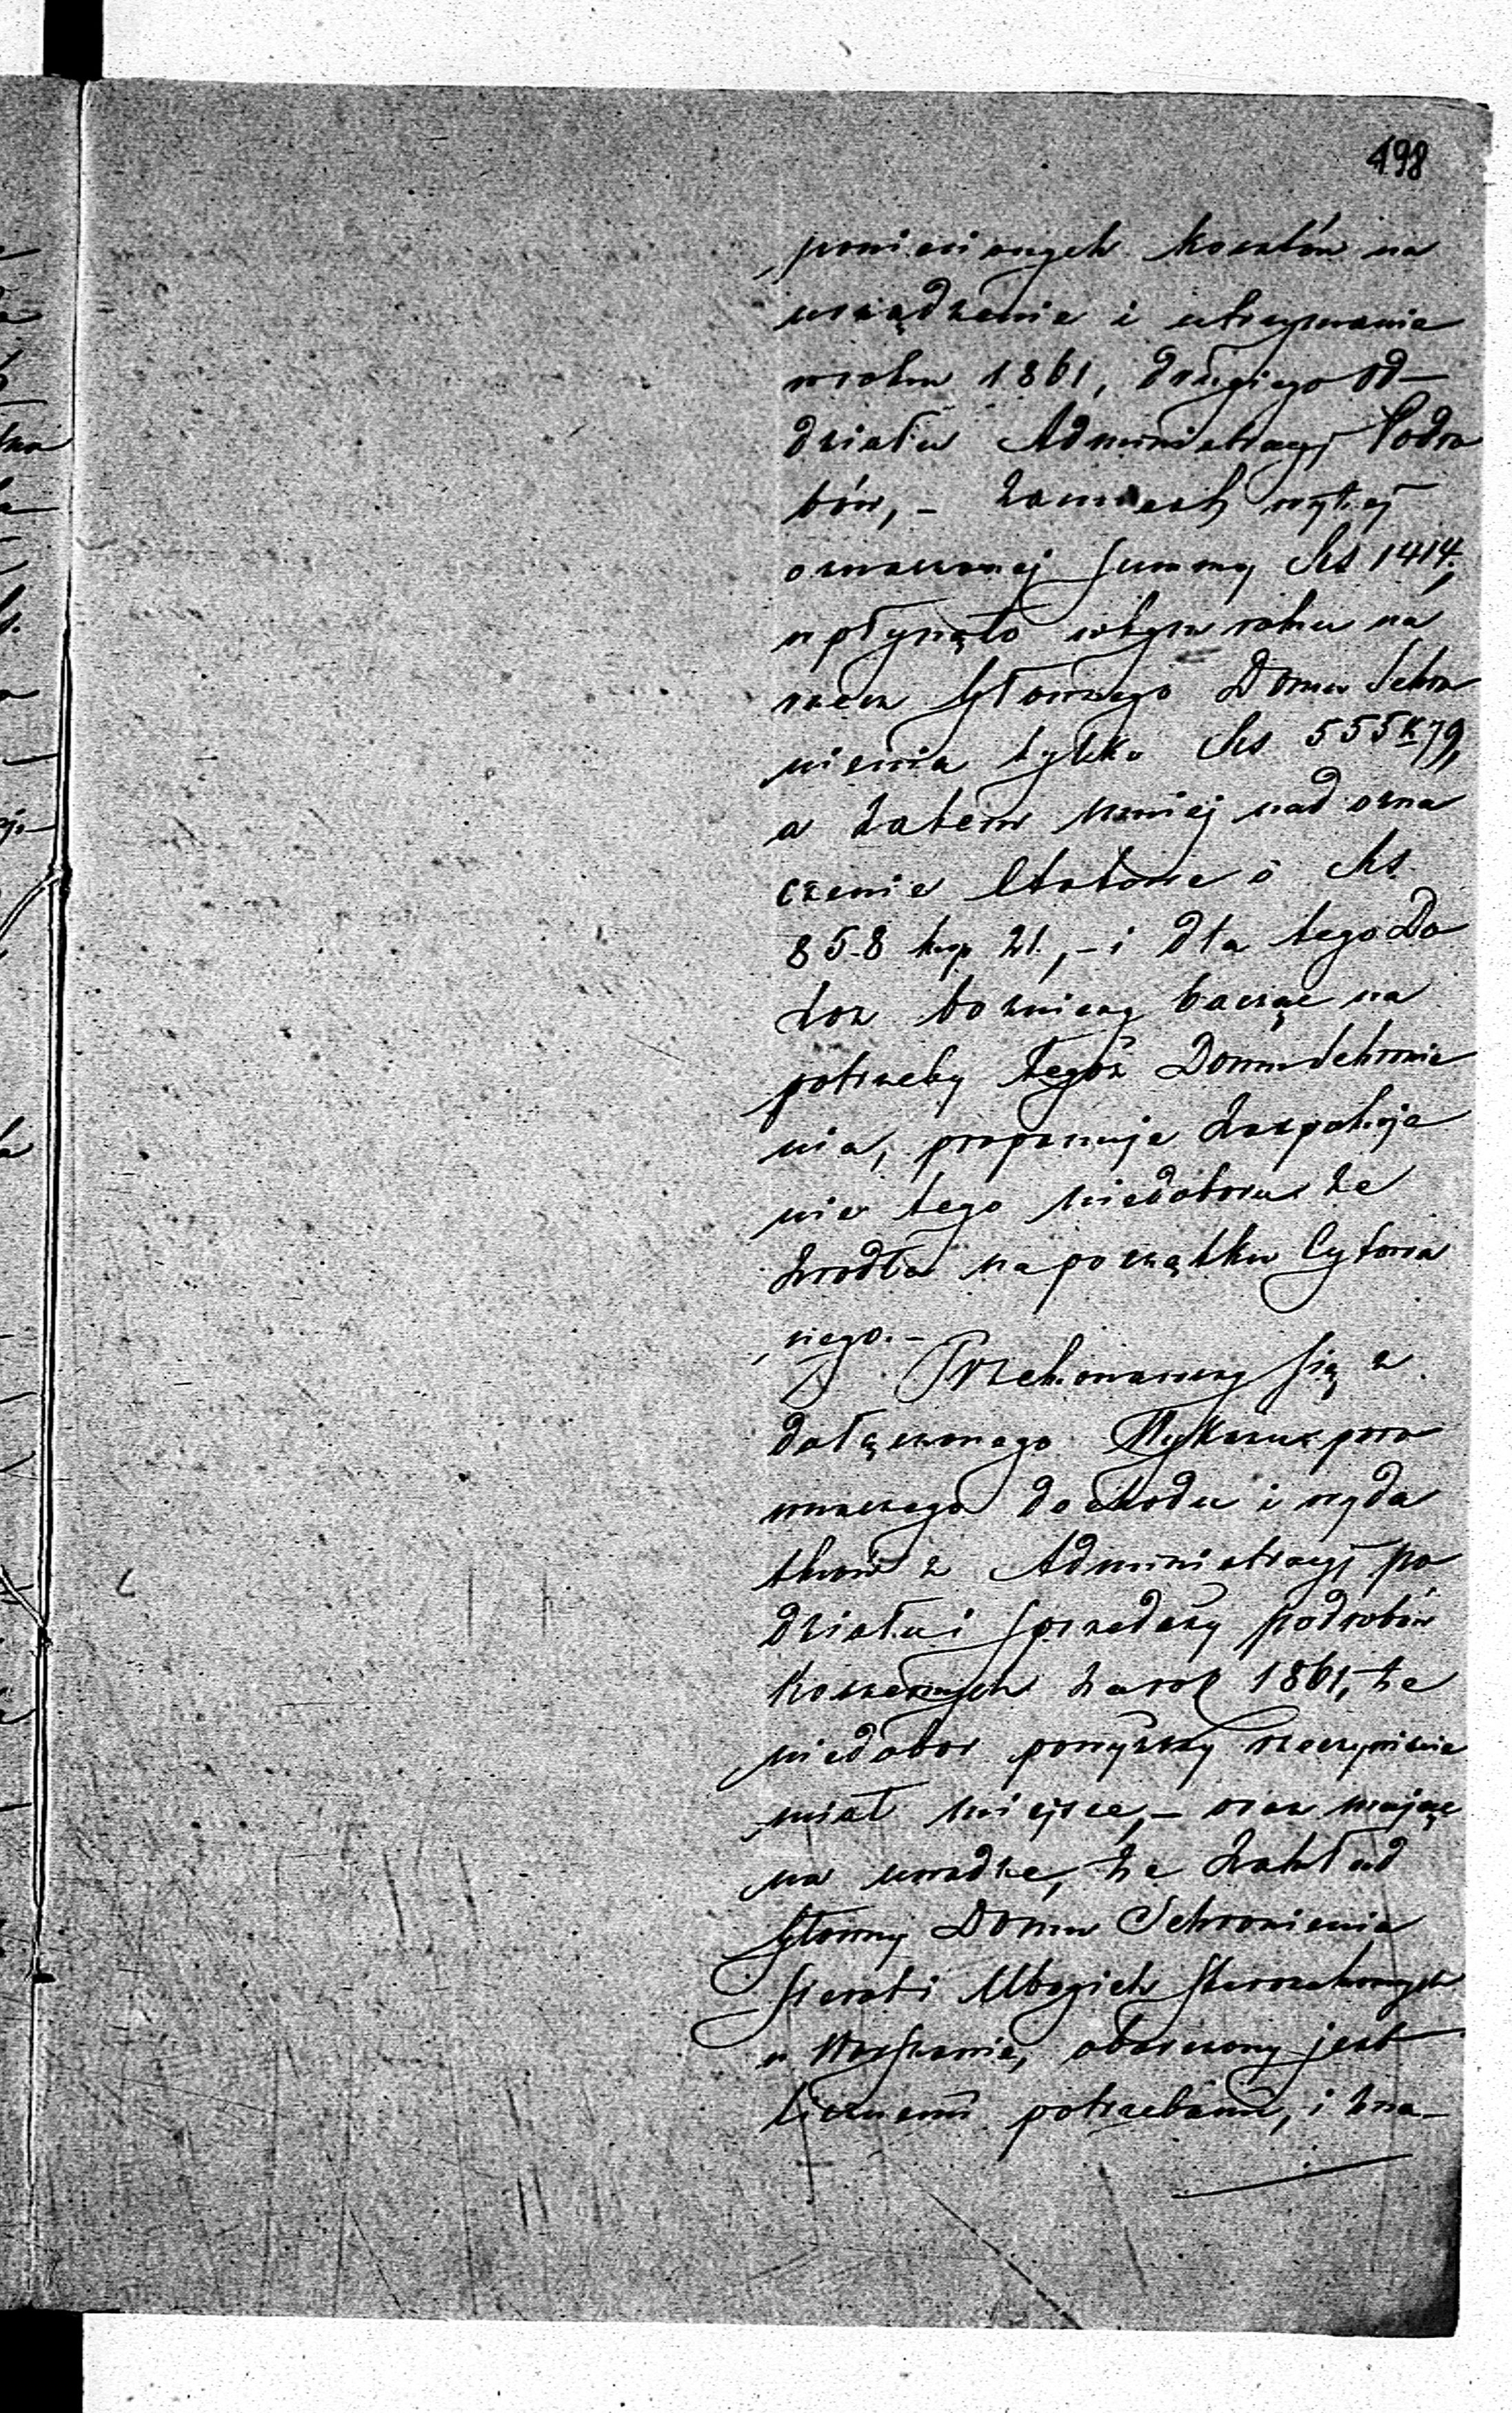 498
poniesionych kosztów na
urządzenie i utrzymanie
w roku 1861, drugiego Od-
działu Administracyi Podro
bów, - zamiast wyżej
oznaczonej Summy Rs 1414.,
wpłynęło w tym roku na
rzecz Głównego Domu Schro
nienia tylko Rs 555 k 79,
a zatem mniej nad ozna
czenie Etatowe o Rs.
858 kop 21., - i dla tego Do
zor bożniczy bacząc na
potrzeby tegoż Domu Schronie
nia, proponuje zaspokoje
nie tego niedoboru ze
zrodła na początku Cytowa
nego. -
Przekonawszy się z
dołączonego Wykazu poro
wnawczego dochodu i wyda
tków z Administracyi po
działu i sprzedaży podrobów
Koszernych za rok 1861, że
niedobor powyższy rzeczywiście
miał miejsce, - oraz mając
na uwadze, że Zakład
Główny Domu Schronienia
Sierot i Ubogich Starozakonnych
w Warszawie, obarczony jest
licznemi potrzebami, i zna-